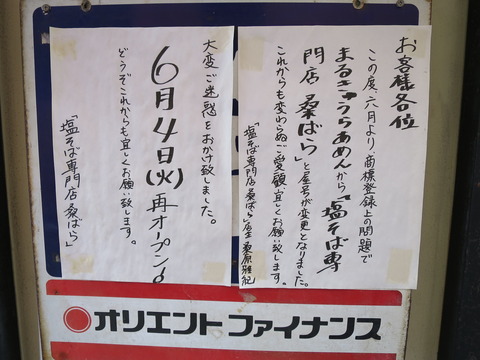 お客様各位
この度、六月より、商標登録上の問題で
まるきゅうらあめんから「塩そば専
門店 桑ばら」と屋号が変更となりました。
これからも変わらぬご愛顧宜しくお願い致します。
「塩そば専門店桑ばら」店主 桑原雅紀
大変ご迷惑をおかけ致しました。
6月4日(火)再オープン!
どうぞこれからも宜しくお願い致します。
「塩そば専門店 桑ばら」
オリエントファイナンス